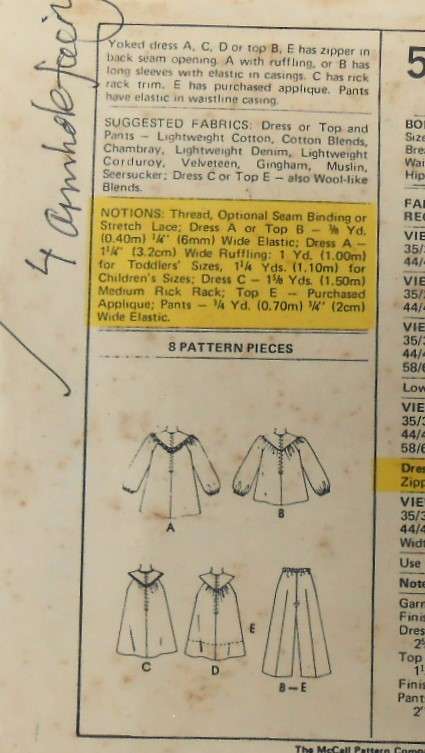 Yoked dress A, C, D or top B, E has zipper in
back seam opening. A with ruffling, or B has
long sleeves with elastic in casings. C has rick
rack trim. E has purchased applique. Pants
have elastic in waistline casing.
SUGGESTED FABRICS: Dress or Top and
Pants – Lightweight Cotton, Cotton Blends,
Chambray, Lightweight Denim, Lightweight
Corduroy, Velveteen, Gingham, Muslin,
Seersucker; Dress C or Top E – also Wool-like
Blends.
NOTIONS: Thread, Optional Seam Binding or
Stretch Lace; Dress A or Top B – ⅜ Yd.
(0.40m) ¼" (6mm) Wide Elastic; Dress A –
1¼" (3.2cm) Wide Ruffling: 1 Yd. (1.00m)
for Toddlers' Sizes, 1¼ Yds. (1.10m) for
Children's Sizes; Dress C – 1⅝ Yds. (1.50m)
Medium Rick Rack; Top E – Purchased
Applique; Pants – ¾ Yd. (0.70m) ¾" (2cm)
Wide Elastic.
8 PATTERN PIECES
A
B
C
D
E
B – E
4
5
BO
Size
Brea
Wai
Hip
FA
REC
VIE
35/3
44/4
VIE
35/3
44/4
VIE
35/3
44/4
58/6
Low
VIE
35/3
44/4
58/6
Dres
Zipp
VIE
35/3
44/4
Widt
Use
Note
Garr
Finis
Dres
2⅝
Top
1½
Finis
Pant
2"
The McCall Pattern Compa